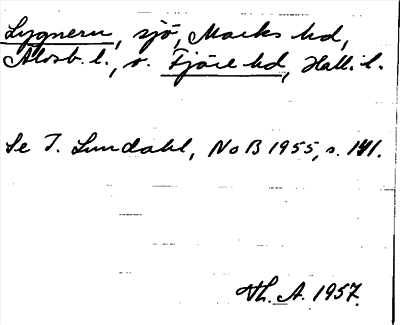 Lygnern, sjö, Marks hd,
Älvsb. l., o. Fjäre hd, Hall. l.
Se I. Lundahl, NoB 1955, s. 141.
Th. A. 1957.